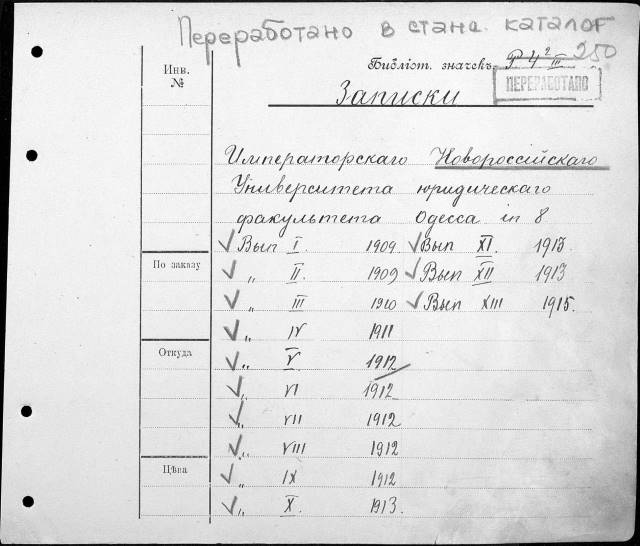 Переработано в стан. каталог
Инв.
№
Библіот. значекъ Р 4 2 III 250
ПЕРЕРАБОТАНО
Записки
Императорскаго Новороссійскаго
Университета юридическаго
факультета Одесса in 8
Вып I. 1909 Вып XI. 1913
По заказу
„ II. 1909 Вып XII 1913
„ III 1910 Вып XIII 1915.
„ IV 1911
Откуда
„ V 1912
„ VI 1912
„ VII 1912
„ VIII 1912
Цѣна
„ IX 1912
„ X. 1913.